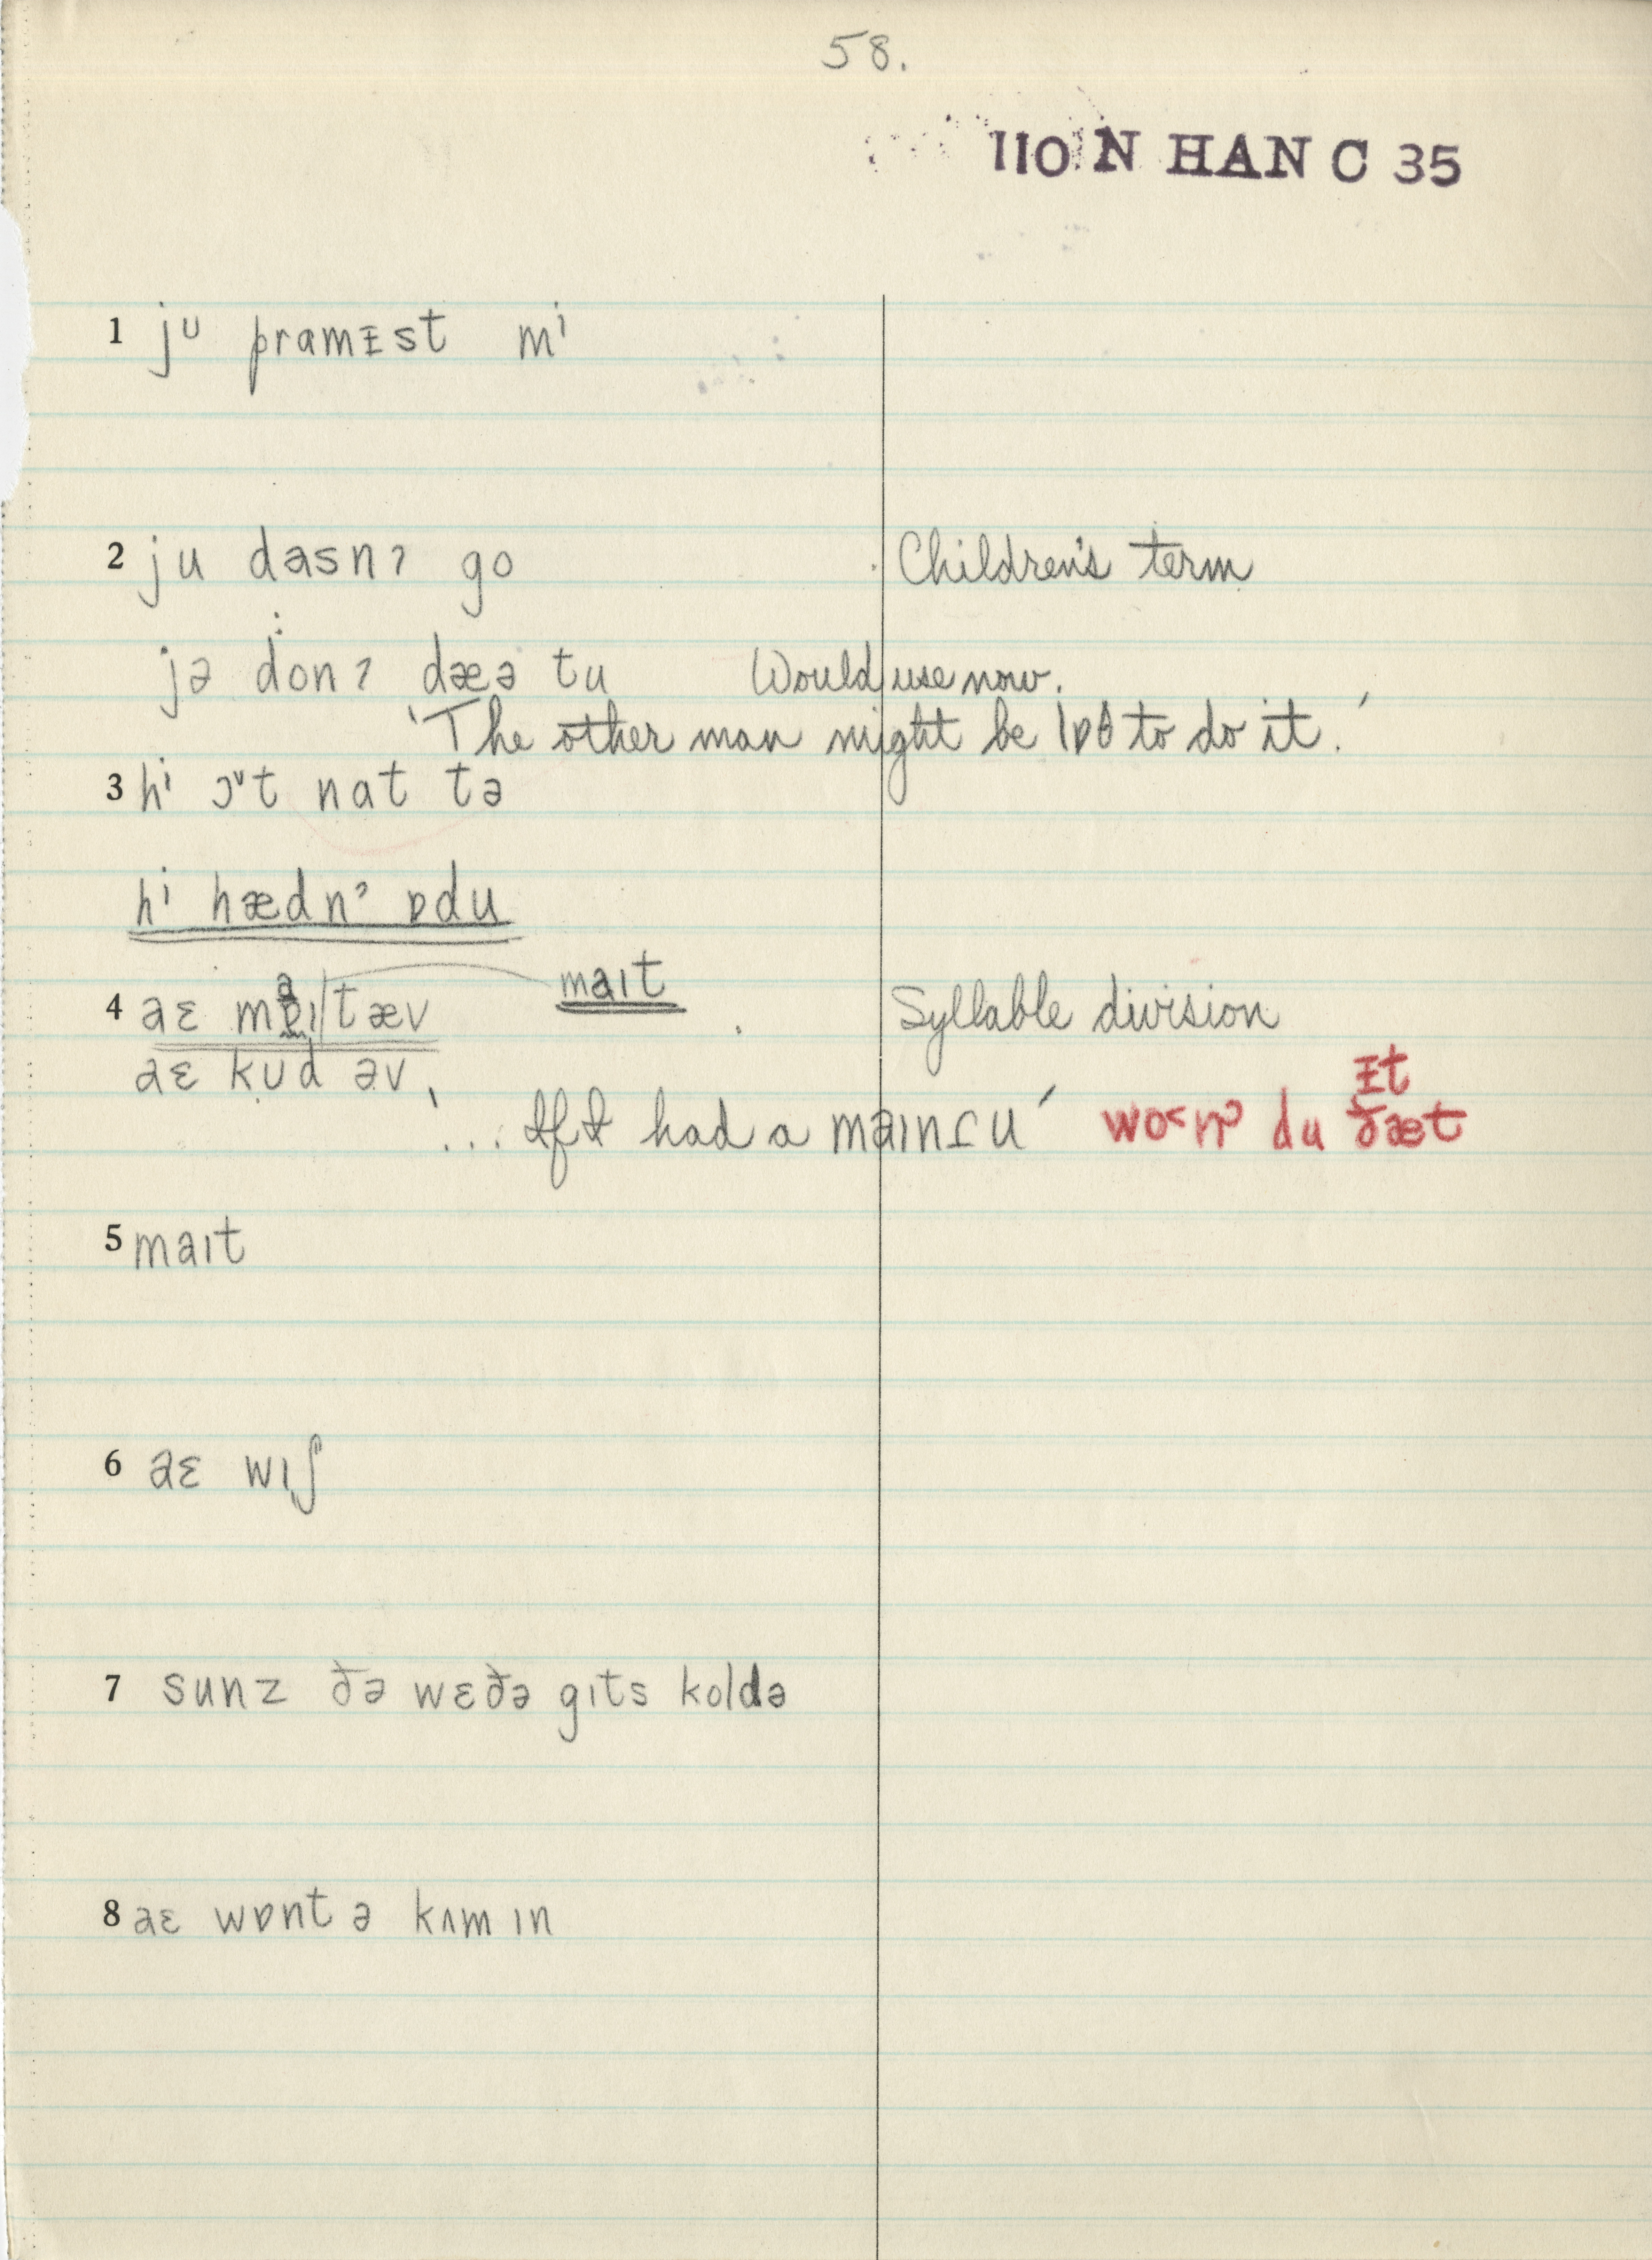 58.
110 N HAN C 35
1 jᶷ pramɪst mⁱ
2 ju dasnʔ go Children's term
jə donʔ dæə tu Would use now.
'The other man might be lɒθ to do it.'
3 hⁱ ɔᶹt nat tə
hⁱ hædnˀ ɒdu
4 aɛ maɪ|tæv maɪt Syllable division
aɛ kʊd əv
'... If I had a maɪn tu' wo˂nˀ du ðæt ɪt
5 maɪt
6 aɛ wɪʃ
7 sunz ðə wɛðə gɪts koldə
8 aɛ wɒnt ə kʌm ɪn